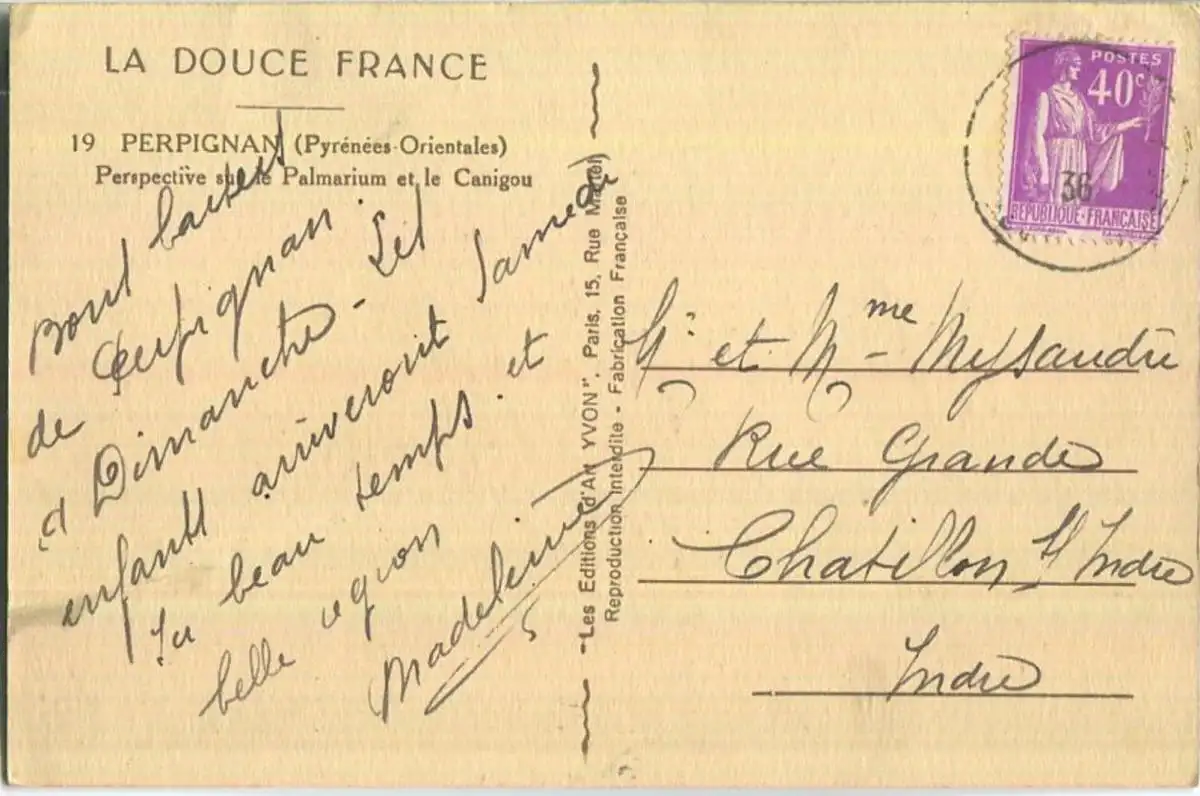 LA DOUCE FRANCE
19 PERPIGNAN (Pyrénées-Orientales)
Perspective sur le Palmarium et le Canigou
Bons baisers
de Perpignan.
à Dimanche - Les
enfants arriveront Samedi
ici beau temps. et
belle région
Madeleine
"Les Editions d'Art YVON". Paris, 15, Rue Martel
Reproduction Interdite - Fabrication Française
POSTES
40c
36
REPUBLIQUE-FRANÇAISE
Mr et Mme Meysandie
Rue Grande
Chatillon s/ Indre
Indre